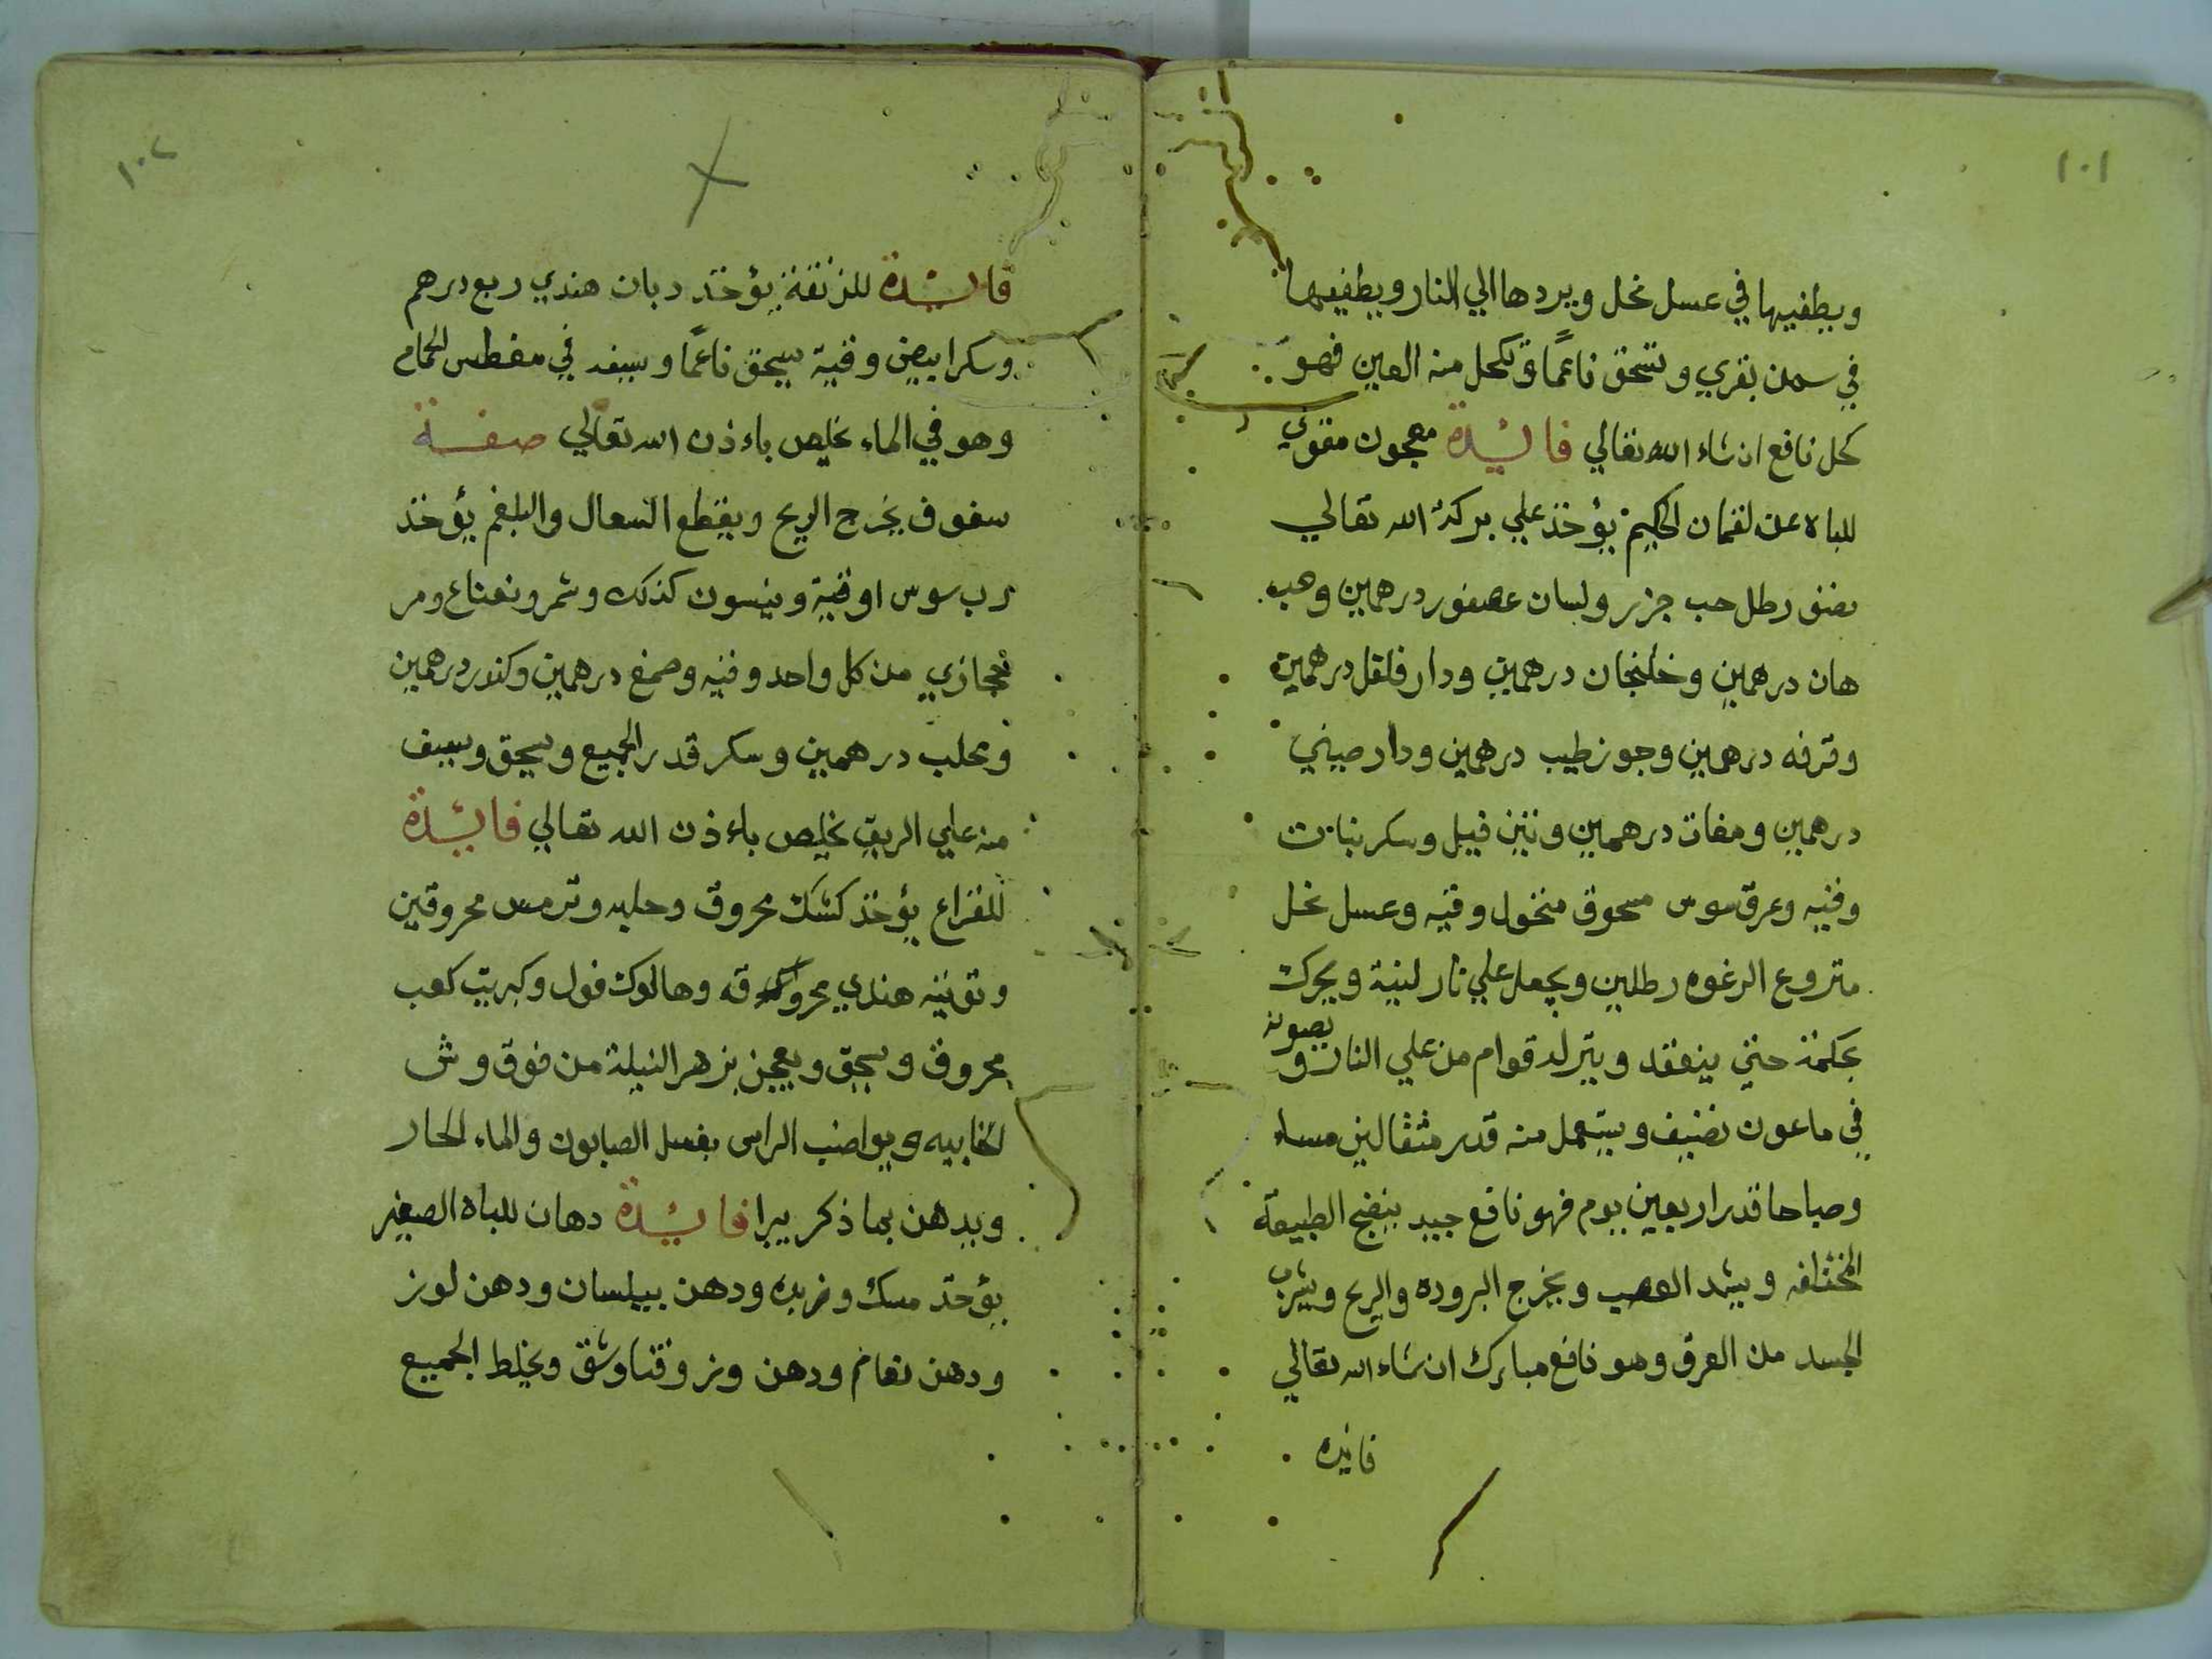 ١٠١
ويطفيها في عسل نحل ويردها الي النار ويطفيها
في سمن بقري وتسحق ناعمًا وتكحل منه العين فهو
كحل نافع ان شاء الله تعالي فائيدة معجون مقوي
للباه عن لقمان الحكيم يؤخذ علي بركة الله تعالي
نصف رطل حب جزر ولسان عصفور درهمين وحب
هان درهمين وخلنجان درهمين ودار فلفل درهمين
وقرفه درهمين وجوز طيب درهمين ودار صيني
درهمين ومغات درهمين وتين فيل وسكر نبات
وقيه وعرق سوس مسحوق منخول وقيه وعسل نحل
متروع الرغوه رطلين ويجعل علي نار لينة ويحرك
بحكمة حتي ينعقد ويترلد قوام من علي النار و يصونه
في ماعون نضيف ويستعمل منه قدر مثقالين مساء
وصباحا قدر اربعين يوم فهو نافع جييد ينفع الطبيعة
المختلفه ويشد العصب ويخرج البروده والريح ويشرب
الجسد من العرق وهو نافع مبارك ان شاء الله تعالي
فائيده
١٠٢
فائيدة للزنقة يؤخذ دبان هندي ربع درهم
وسكر ابيض وقية يسحق ناعمًا ويسفه في مغطس الحمام
وهو في الماء يخلص باءذن الله تعالي صفة
سفوف يخرج الريح ويقطع السعال والبلغم يؤخذ
رب سوس اوقية وينسون كذلك وشمر ونعناع ومر
حجازي من كل واحد وقيه وصمغ درهمين وكندر درهمين
ومحلب درهمين وسكر قدر الجميع ويسحق ويسف
منه علي الريق يخلص باءذن الله تعالي فائيدة
للقراع يؤخذ كشك محروق وحلبه وترمس محروقين
وتوتيه هندي محروقه وهالوك فول وكبريت كعب
محروق ويسحق ويعجن بزهر النيلة من فوق وش
الخابيه ويواضب الراس بغسل الصابون والماء الحار
ويدهن بما ذكر يبرا فائيدة دهان للباه الصغير
يؤخذ مسك وزبده ودهن بيلسان ودهن لوز
ودهن نعام ودهن وز وقنا وشق ويخلط الجميع